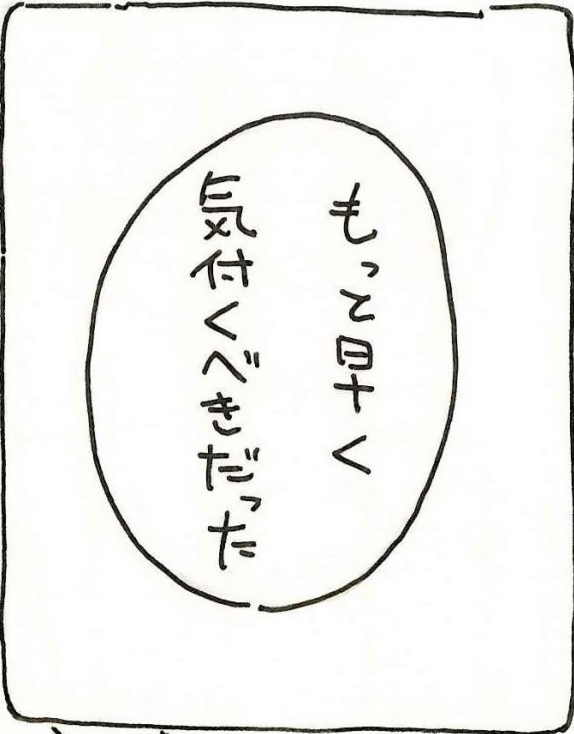 もっと早く
気付くべきだった